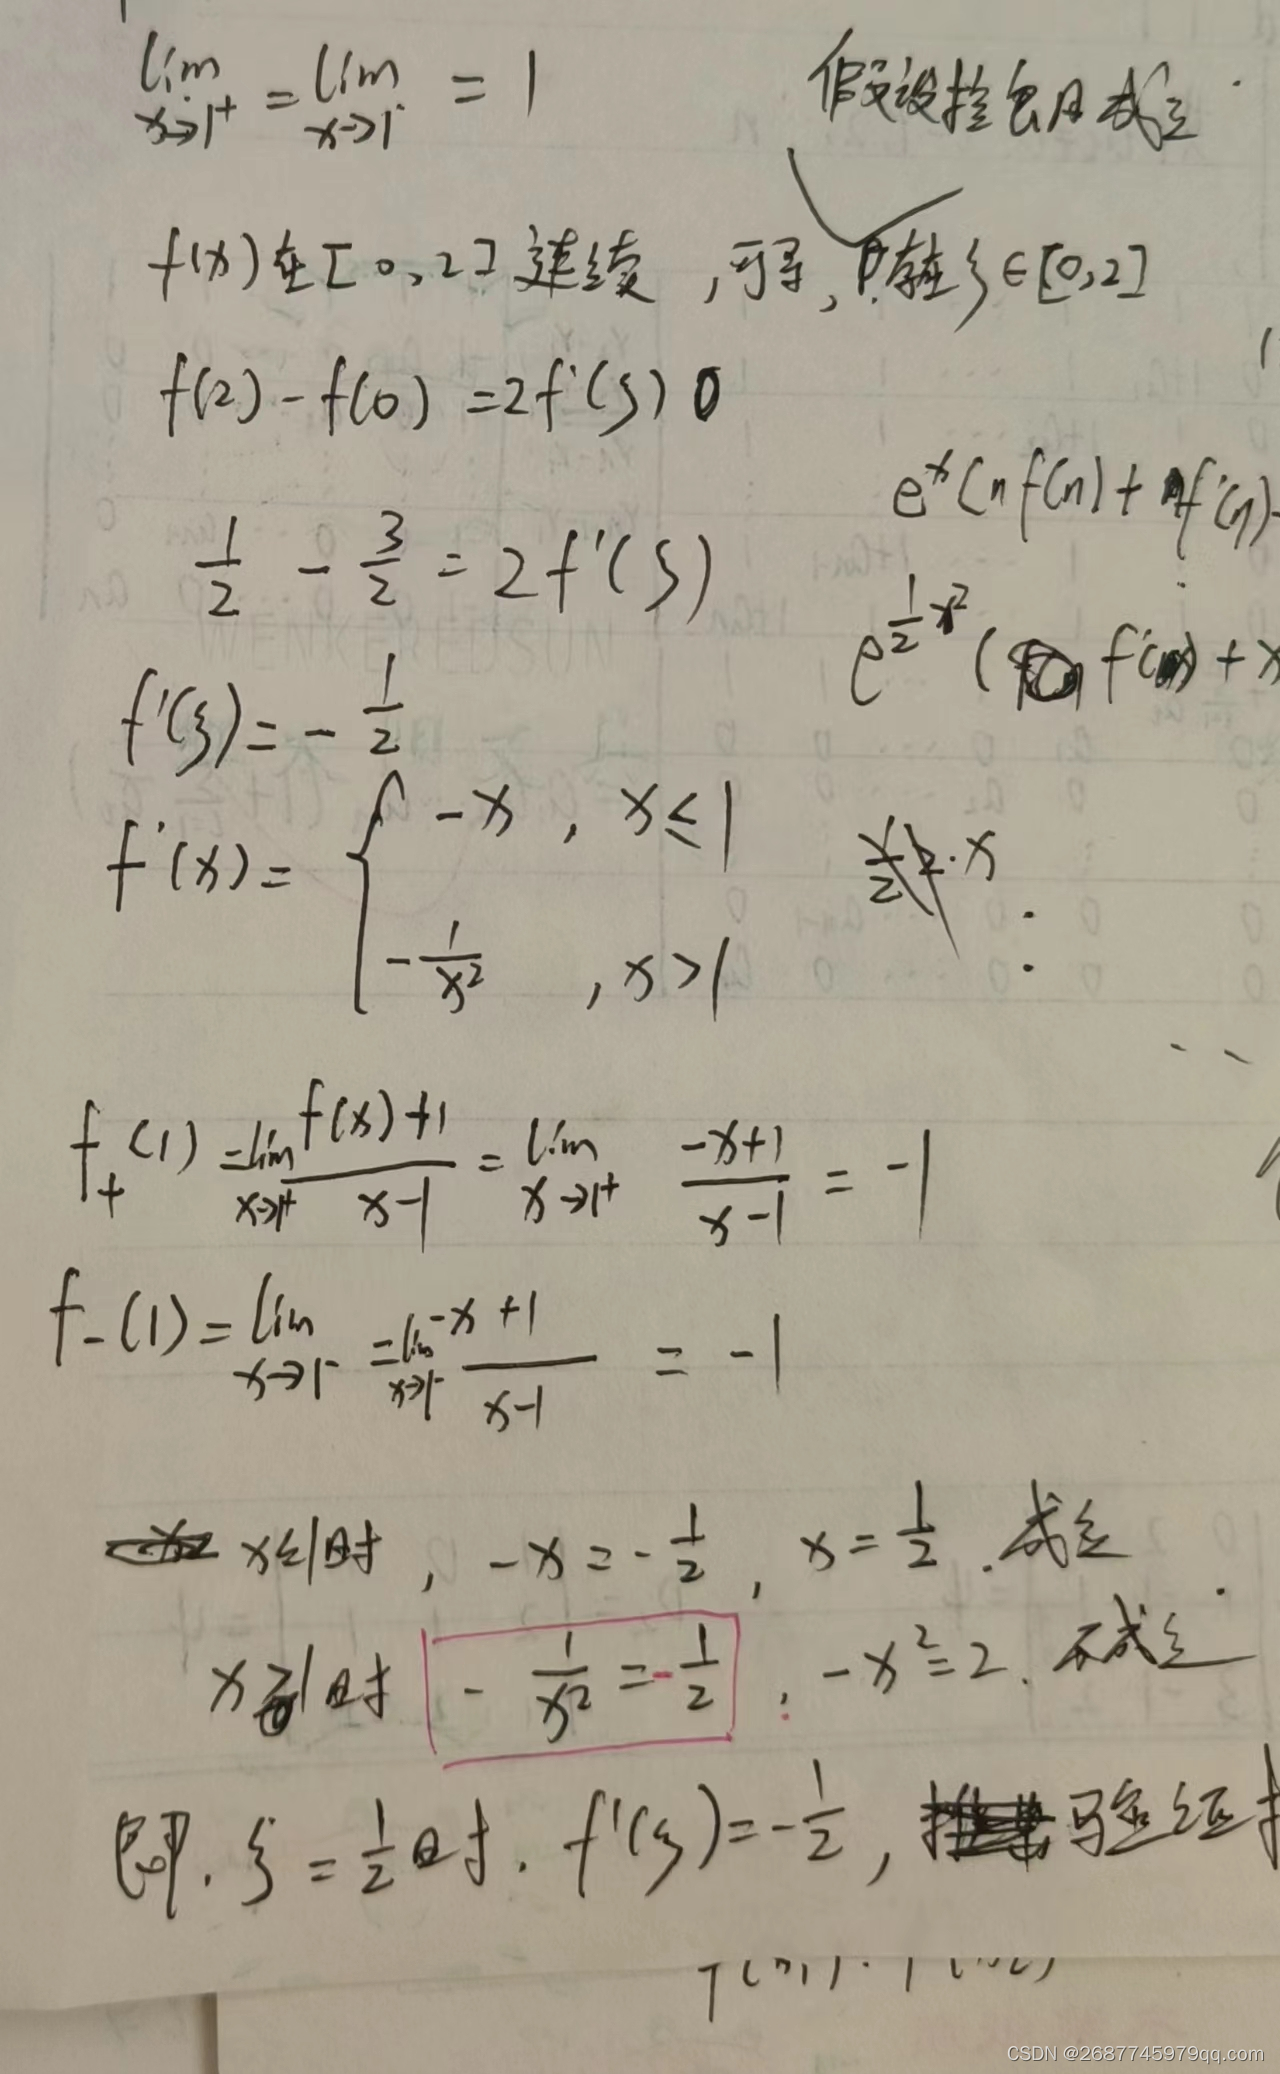 lim x→1⁺ = lim x→1⁻ = 1
假设 成立
f(x)在[0,2]连续,可导, ξ∈[0,2]
f(2)-f(0)=2f'(ξ)
1/2 - 3/2 = 2f'(ξ)
eˣ(nf(n)+ f'(n)-
e^(1/2 x²) ( f'( )+x
f'(ξ)=-1/2
f'(x)= { -x , x≤1
-1/x² , x>1
·x
f₊(1)=lim x→1⁺ (f(x)+1)/(x-1) = lim x→1⁺ (-x+1)/(x-1) = -1
f₋(1)=lim x→1⁻ =lim x→1⁻ (-x+1)/(x-1) = -1
x≤1时, -x=-1/2, x=1/2.成立
x 1时 -1/x²=-1/2 : -x²=2.不成立
即.ξ=1/2时.f'(ξ)=-1/2, 验证
CSDN @2687745979qq.com